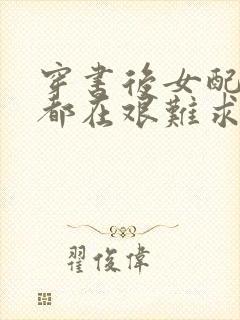 穿書後女配
都在艱難求
翟俊偉